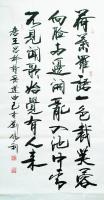 荷葉羅裙一色裁芙蓉
向臉兩邊開亂入池中看
不見聞歌始覺有人来
唐王昌齡詩